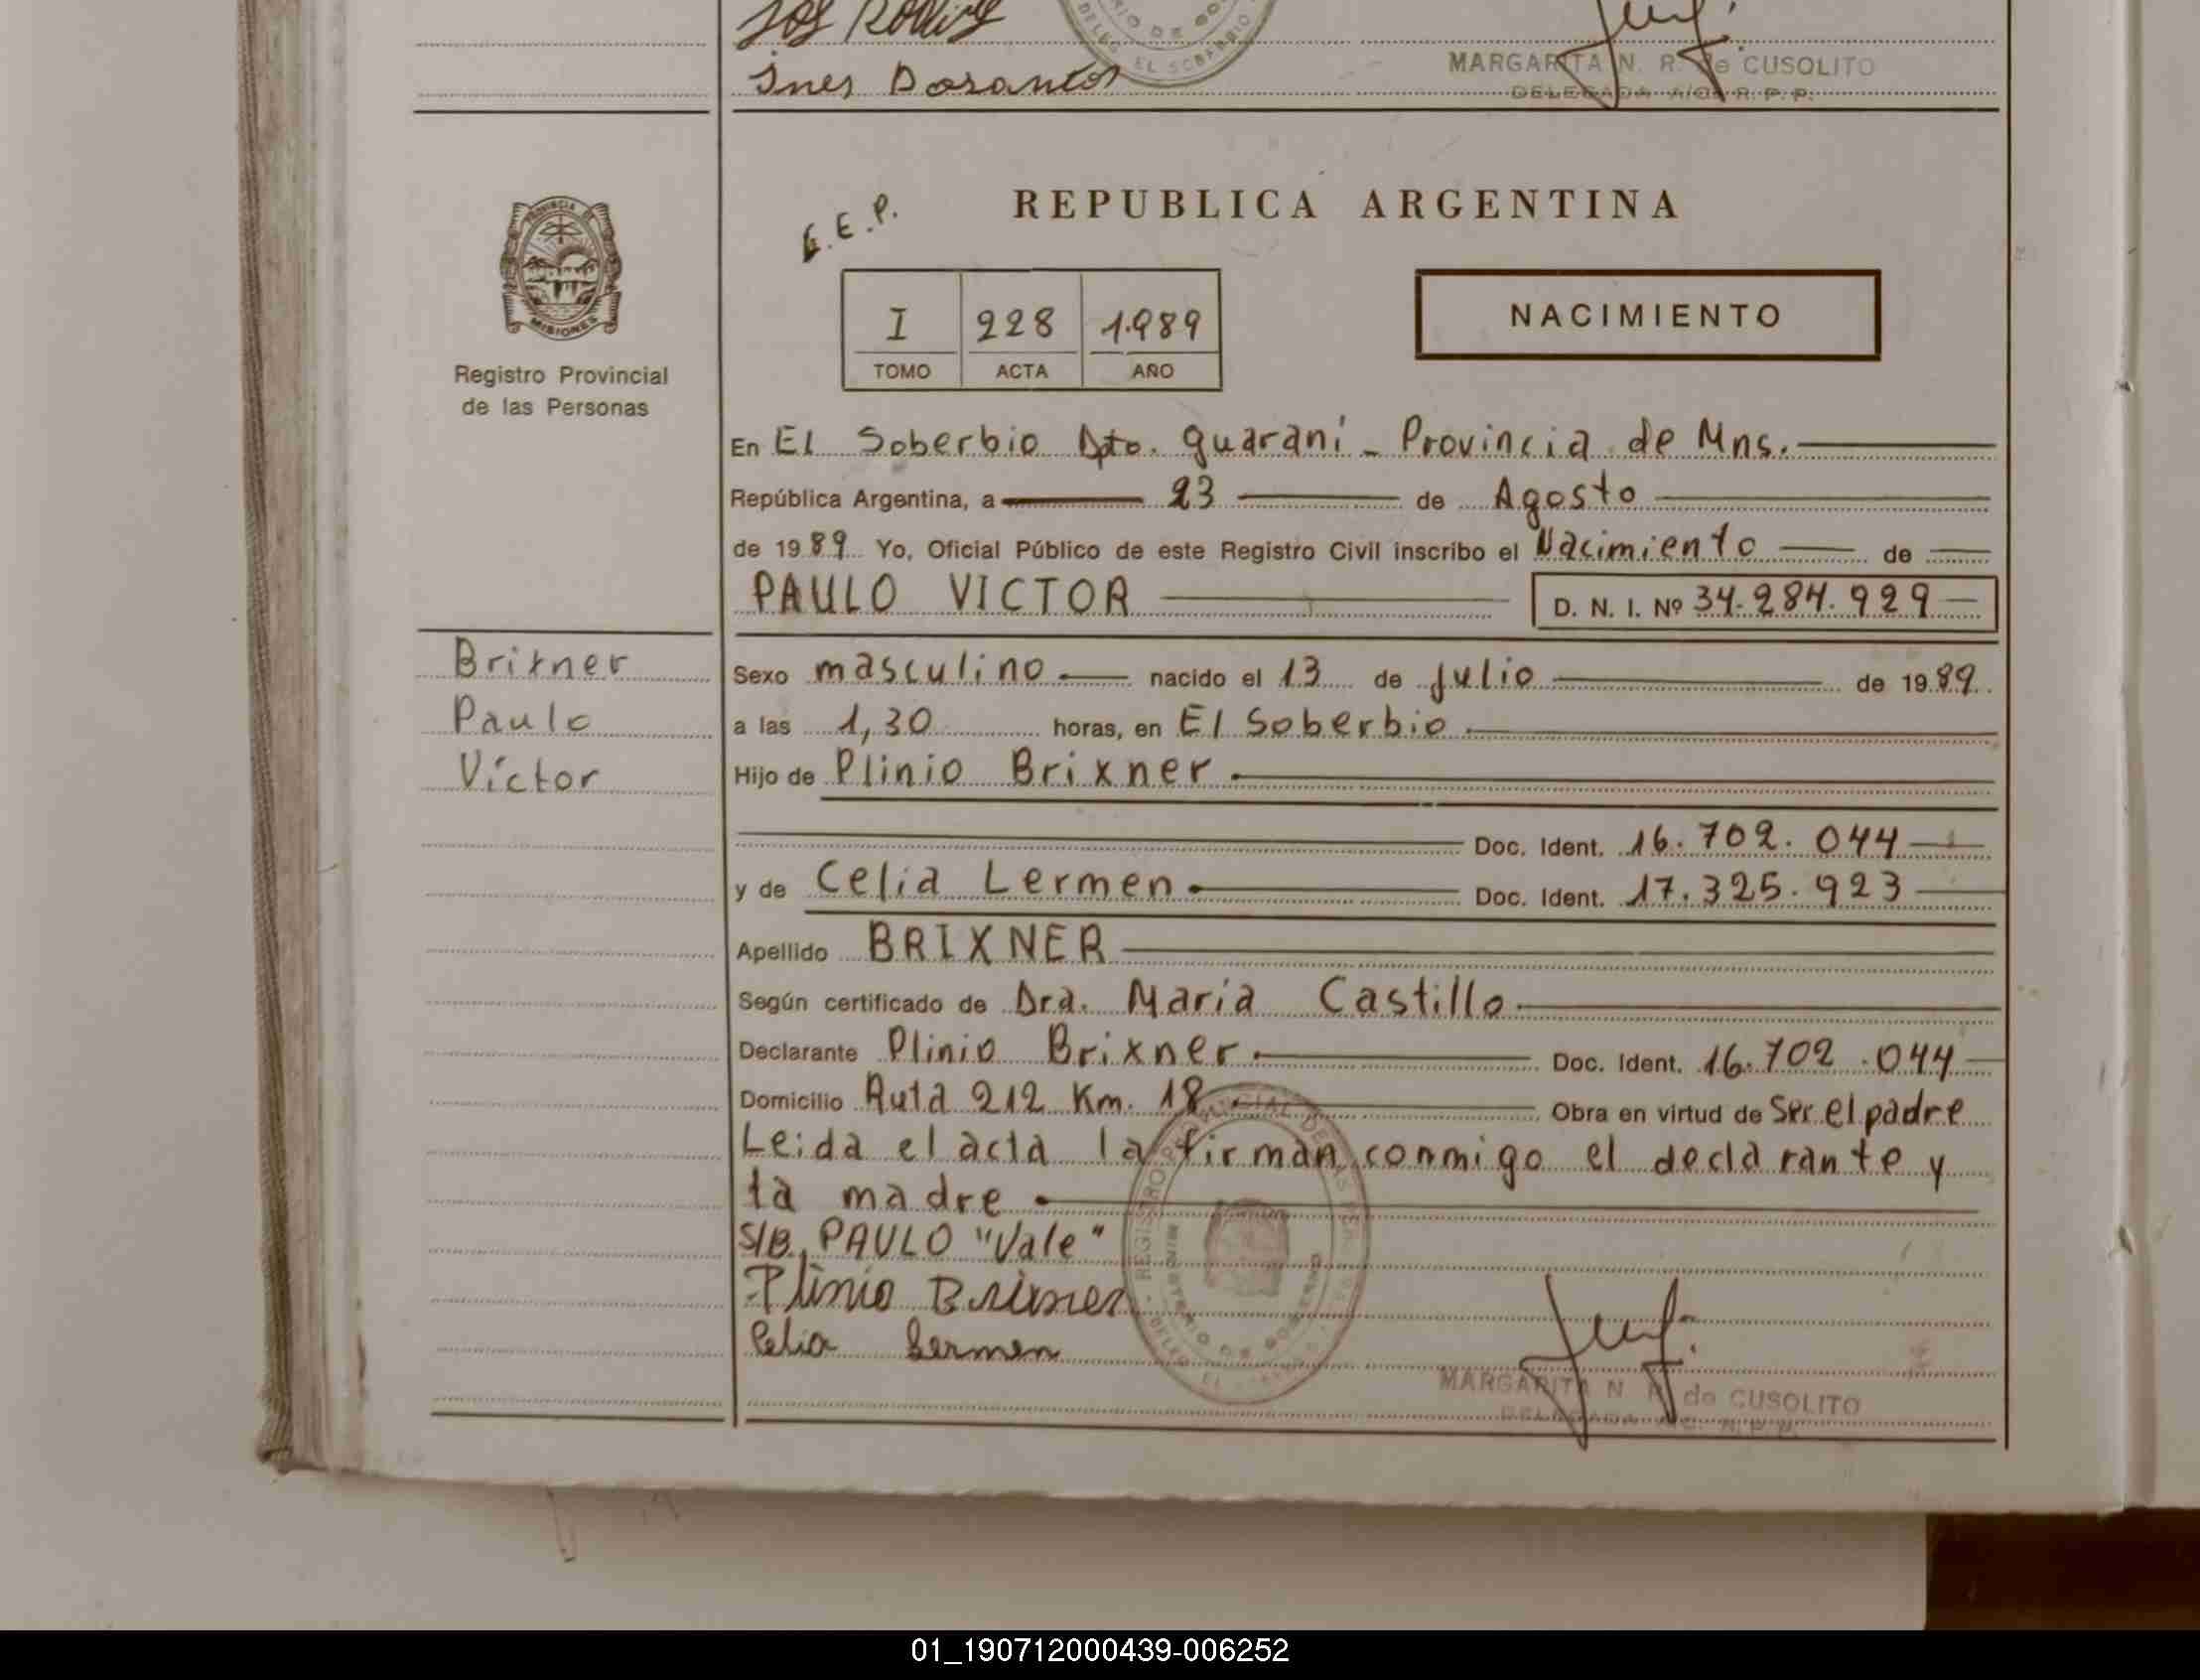 Ines Dosantos
MARGARITA N. R. de CUSOLITO
DELEGADA A/C. R. P. P.
G. E. P.
REPUBLICA ARGENTINA
PROVINCIA DE
MISIONES
Registro Provincial
de las Personas
I 228 1.989
TOMO ACTA AÑO
NACIMIENTO
En El Soberbio Dpto. Guaraní - Provincia de Mns.
República Argentina, a 23 de Agosto
de 1989 Yo, Oficial Público de este Registro Civil inscribo el Nacimiento de
PAULO VICTOR D. N. I. Nº 34.284.929
Brixner
Paulo
Víctor
Sexo masculino nacido el 13 de Julio de 1989.
a las 1,30 horas, en El Soberbio
Hijo de Plinio Brixner
Doc. Ident. 16.702.044
y de Celia Lermen Doc. Ident. 17.325.923
Apellido BRIXNER
Según certificado de Dra. María Castillo
Declarante Plinio Brixner Doc. Ident. 16.702.044
Domicilio Ruta 212 Km. 18 Obra en virtud de Ser el padre
Leida el acta la firman conmigo el declarante y
la madre
S/B. PAULO "Vale"
Plinio Brixner
Celia Lermen
REGISTRO PROVINCIAL DE LAS PER
MINISTERIO DE GOBIERNO
MARGARITA N. R. de CUSOLITO
DELEGADA A/C. R. P. P.
01_190712000439-006252